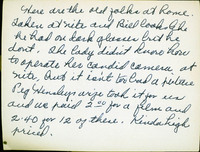 Here are the old folks at Rome.
Taken at nite and Bill looks like
he had on dark glasses but he
dont. The lady didnt know how
to operate her candid camera at
nite, but it isnt to bad a picture
Peg Hensleys wife took it for us
and we paid 2.00 for a film and
2.40 for 12 of these. Kinda high
priced.